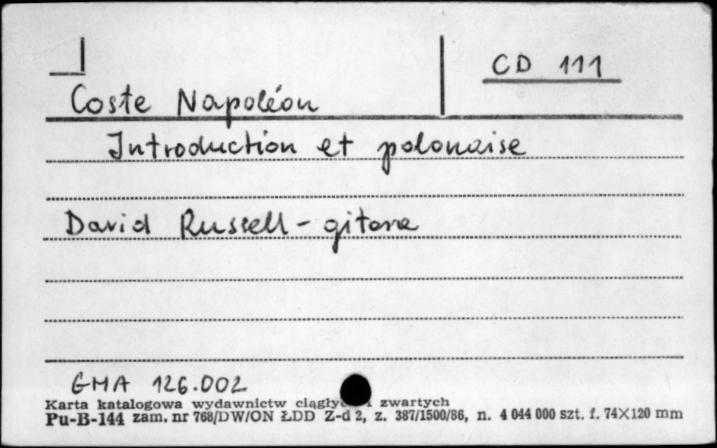 CD 111
Coste Napoléon
Introduction et polonaise
David Russell - gitara
GMA 126.002
Karta katalogowa wydawnictw zwartych
Pu-B-144 zam. nr 768/DW/ON ŁDD Z-d 2, z. 387/1500/86, n. 4 044 000 szt. f. 74×120 mm